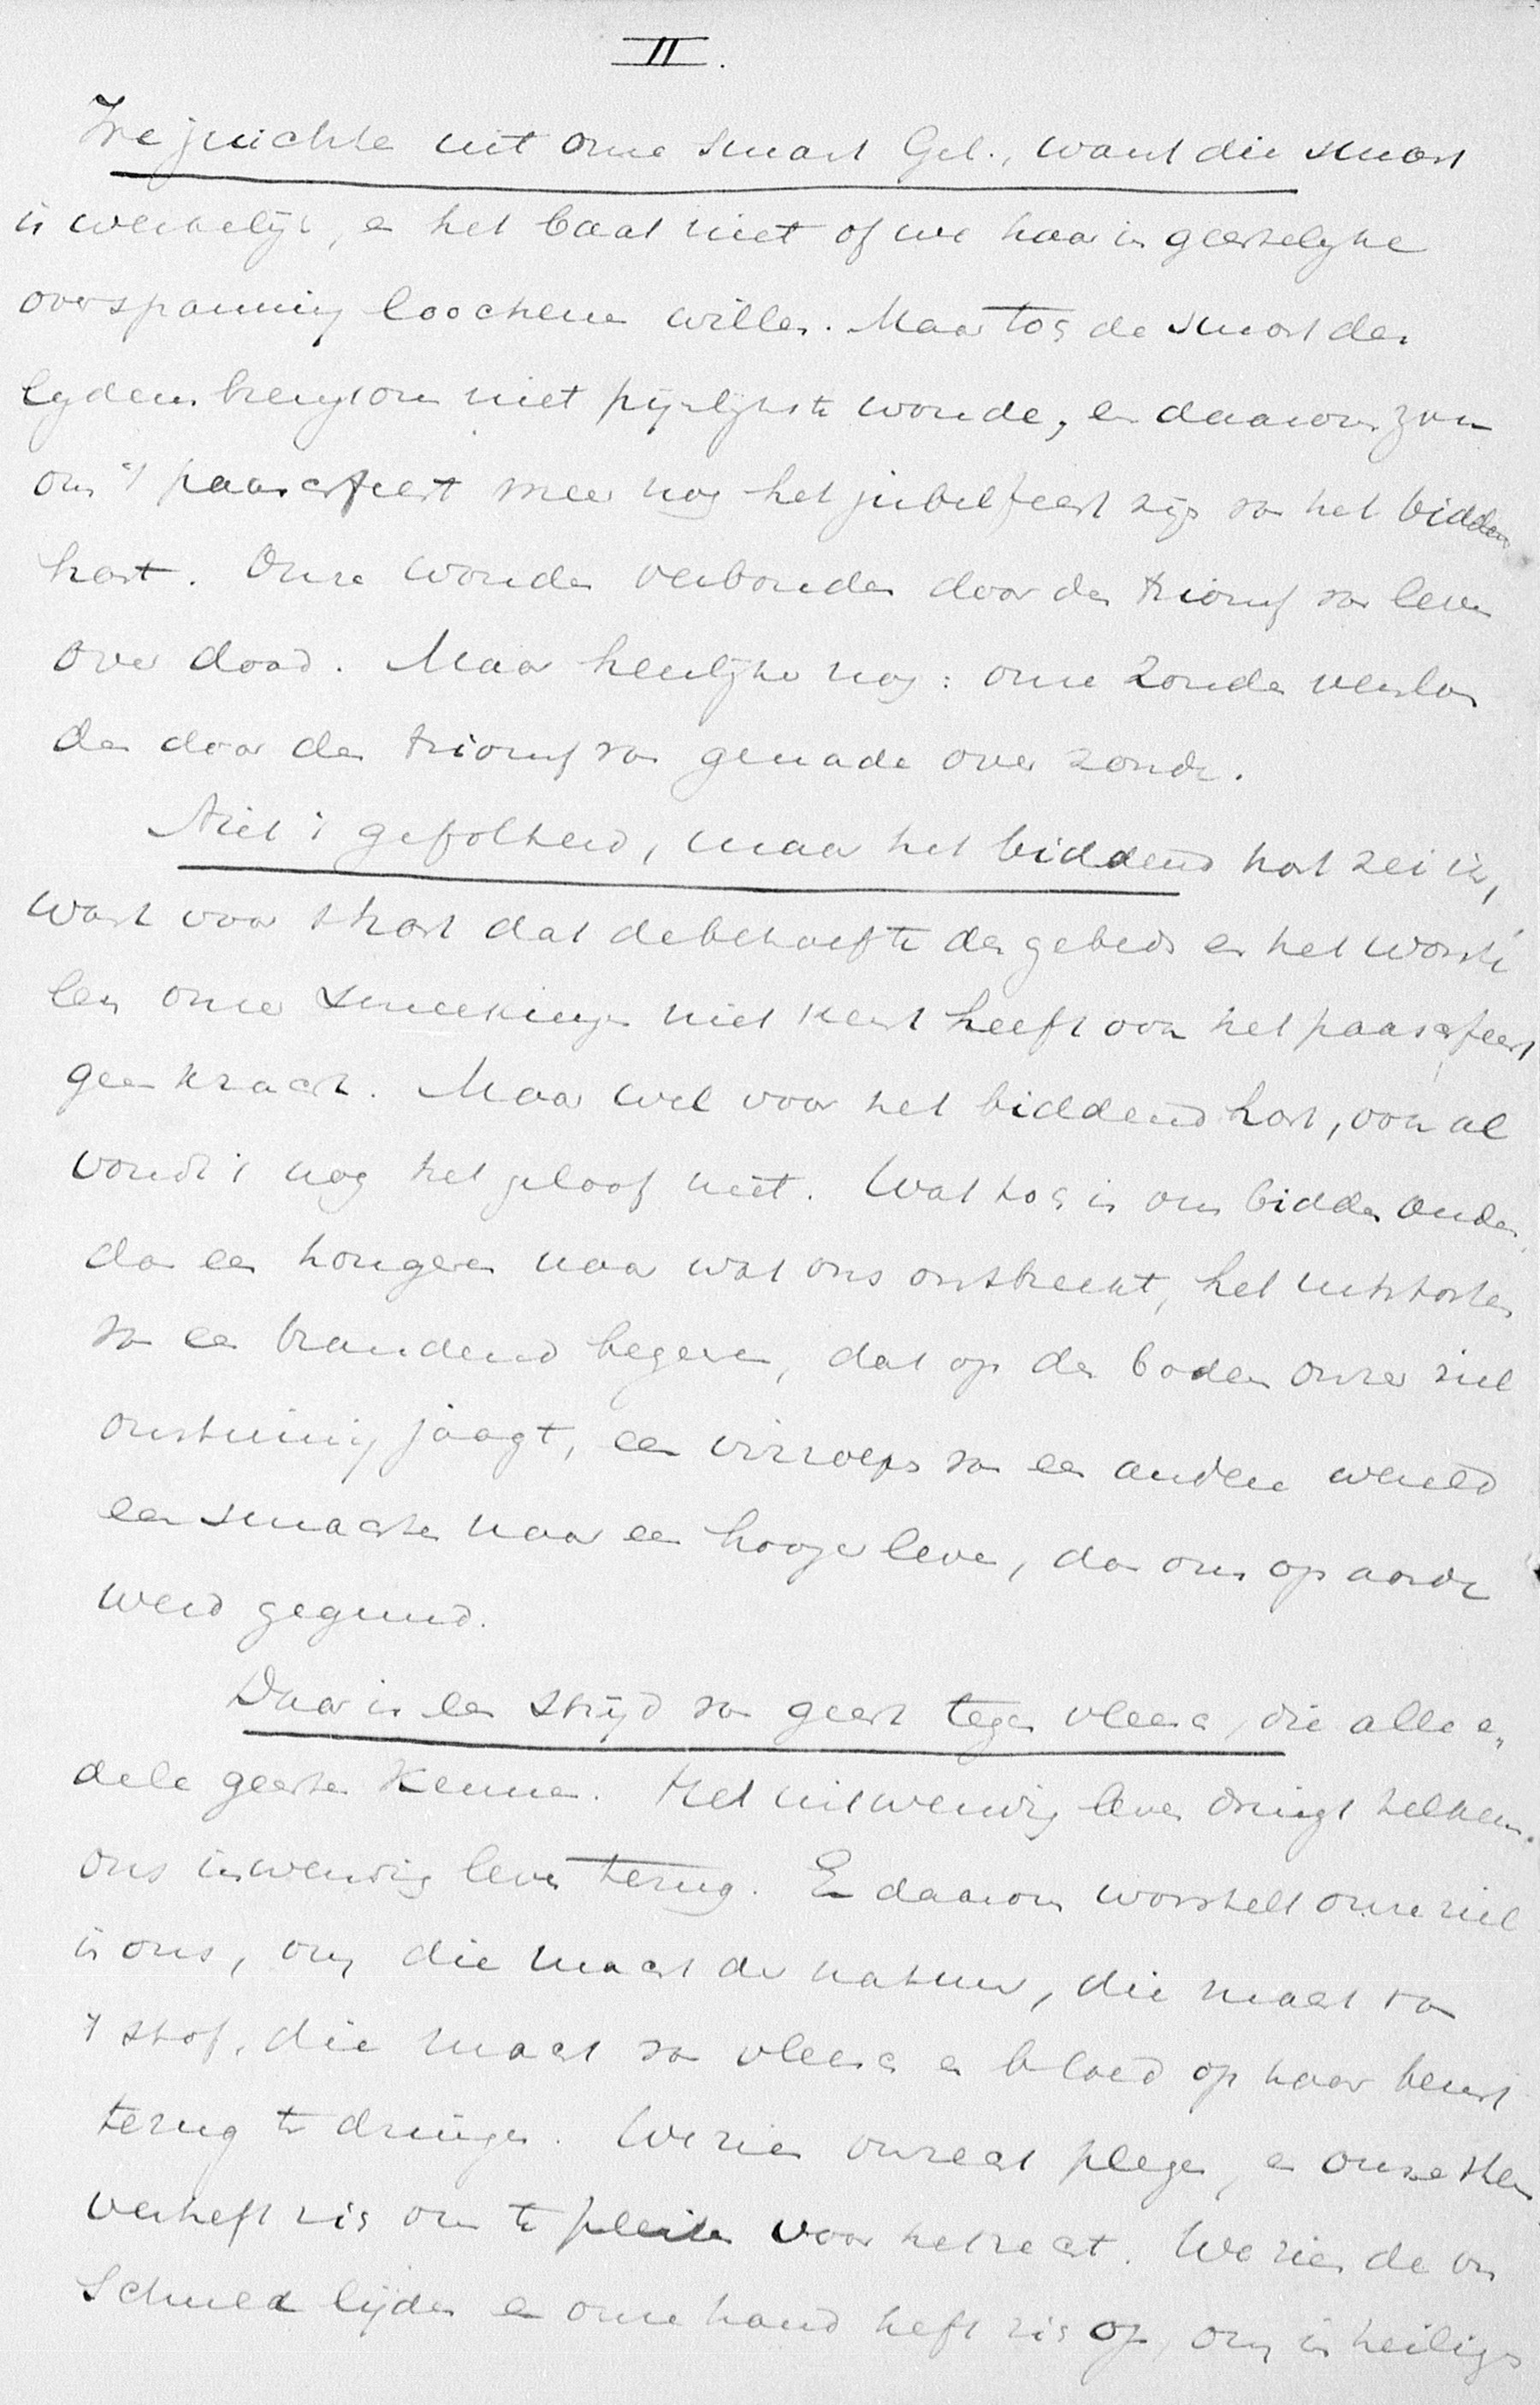 II.
We juichte uit onze smart Gel., want die smart
is werkelijk, en het baat niet of we haar in geestelyke
overspanning loochene willen. Maar toch de smart des
lydens brengt ons niet pynlykste wonde, en daarom zou
ons 't paaschfeest meer nog het jubelfeest zijn van het biddend
hart. Onze wonden verbonden door den triomf van leven
over dood. Maar heerlijker nog: onze zonde
den door den triomf van genade over zonde.
Niet 't gefolterd, maar het biddend hart zei ik,
want voor 't hart dat de behoefte des gebeds en het worste
len onzer smeekingen niet kent heeft ook het paaschfeest
geen kracht. Maar wel voor het biddend hart, ook al
vondt 't nog het geloof niet. Wat toch is ons bidden anders
dan een hongeren naar wat ons ontbreekt, het uitstorten
van een brandend begeren, dat op den bodem onzer ziel
onstuimig jaagt, een van een andere wereld
een smachten naar een hooger leven, dan ons op aarde
werd gegund.
Daar is een strijd van geest tegen vleesch, die alle e„
dele geesten kennen. Het uitwendig leven dringt telkens
ons inwendig leven terug. En daarom worstelt onze ziel
in ons, om die macht der natuur, die macht van
't stof, die macht van vleesch en bloed op haar beurt
terug te dringen. We zien onrecht plegen, en onze stem
verheft zich om te pleiten voor het recht. We zien de on
schuld lijden en onze hand heft zich op, om in heilige